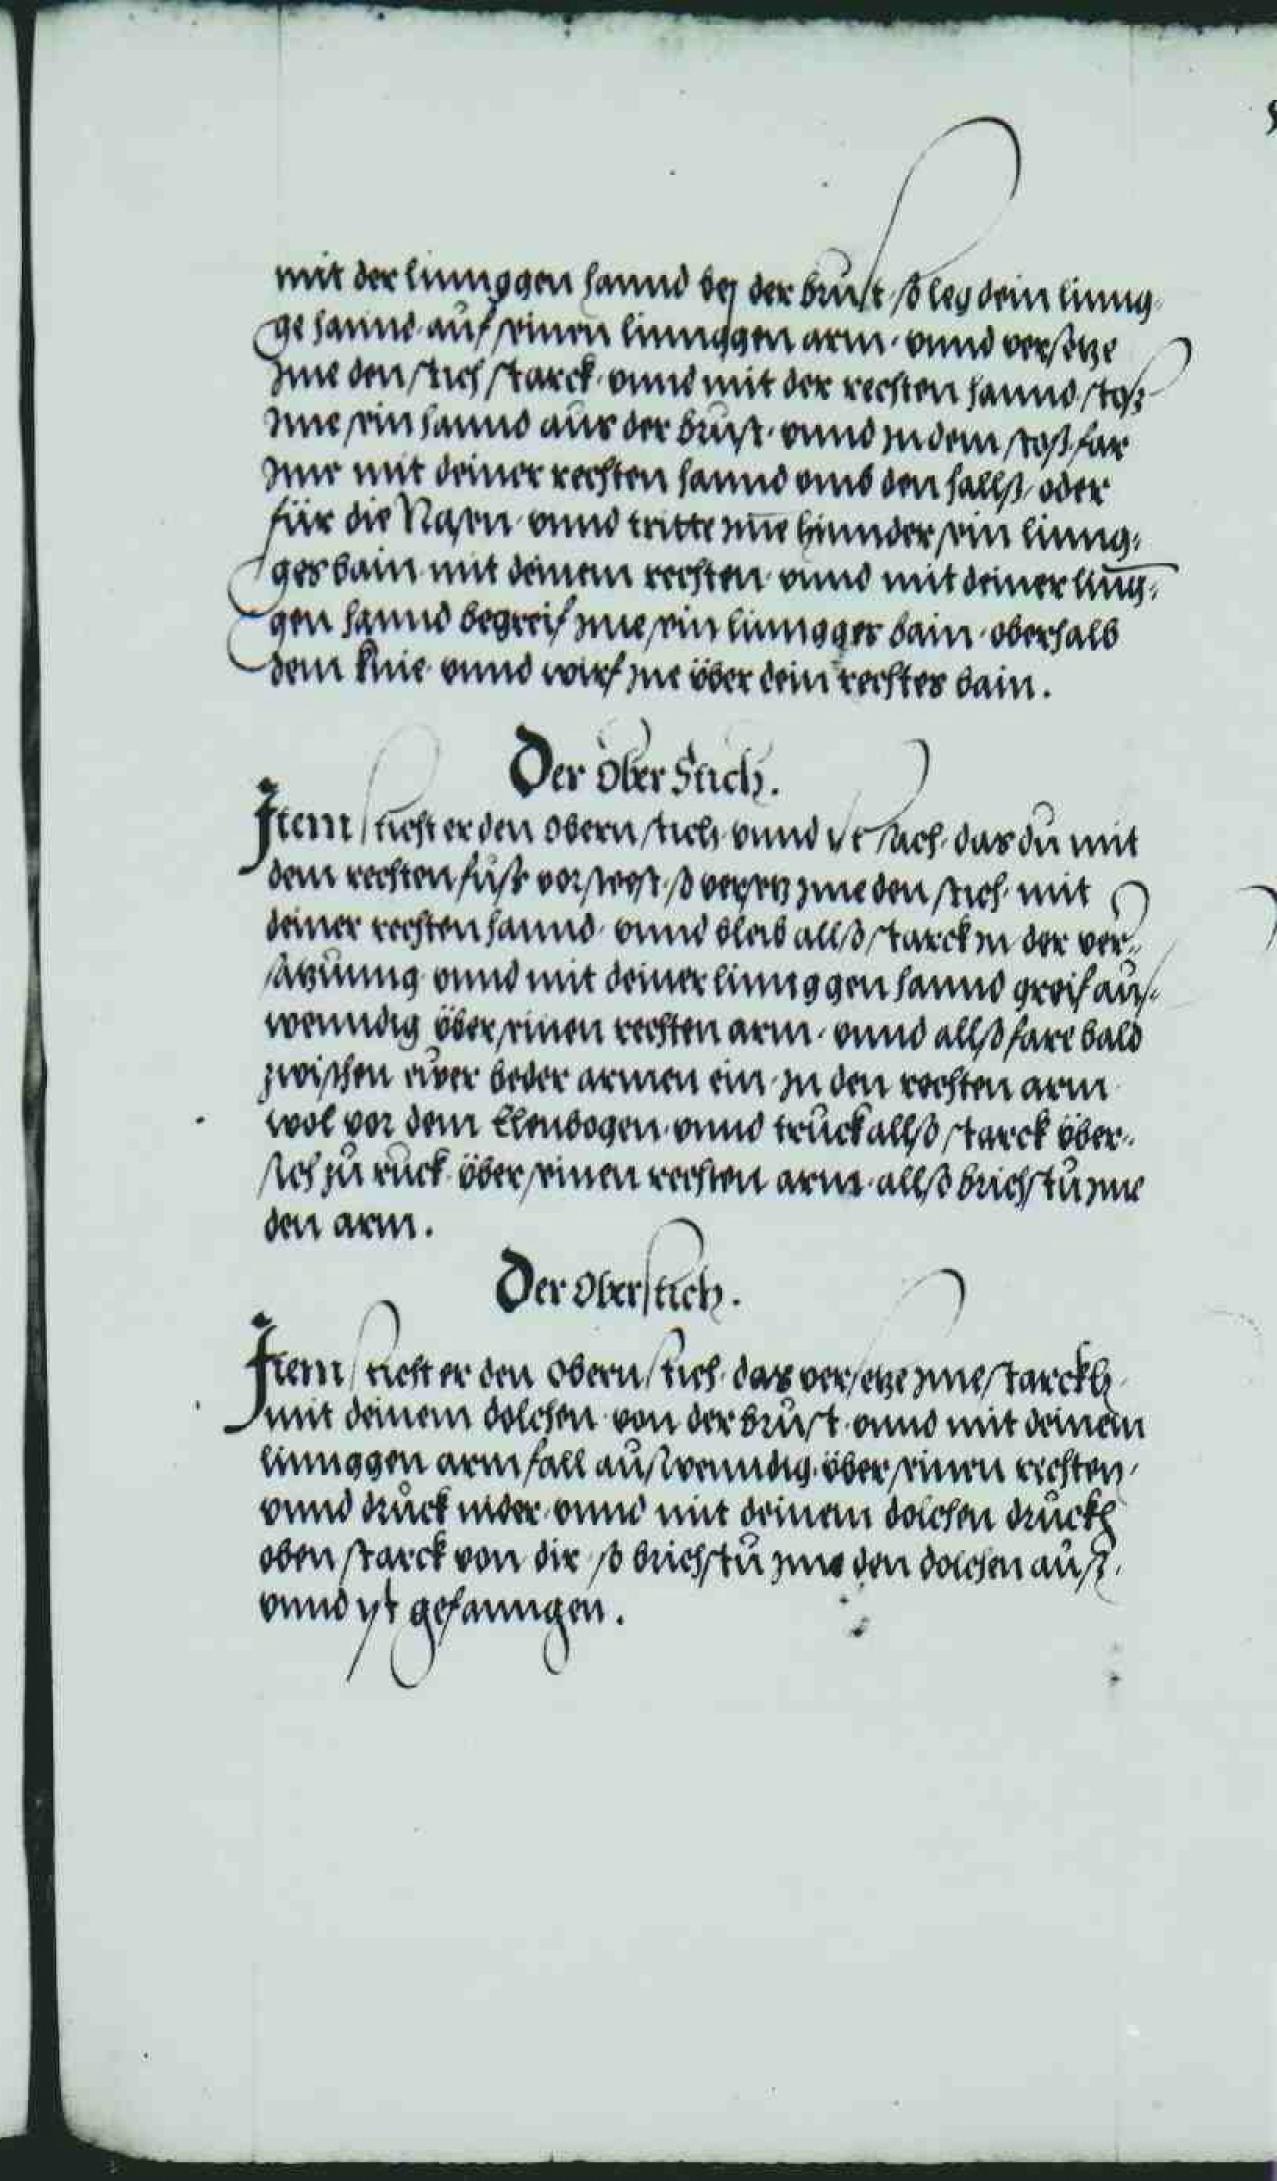 mit der linnggen hannd bej der brust, so leg dein linng-
ge hannd auf seinen linnggen arm, vnnd versetze
Ime den stich starck, vnnd mit der rechten hannd, stoß
Ime sein hannd aus der brust, vnnd in dem stoß, far
Ime mit deiner rechten hannd vmb den hallß, oder
für die Nasen, vnnd tritte Ime hinnder sein linng-
ges bain mit deinem rechten, vnnd mit deiner ling-
gen hannd begreif Ime sein linngges bain, oberhalb
dem knie, vnnd wirf Ine über dein rechtes bain.
Der Ober Stich.
Item sticht er den Obern stich, vnnd ist sach, das du mit
dem rechten fuß vorsteest, so versetz Ime den stich, mit
deiner rechten hannd, vnnd bleib allso starck in der ver-
satzunng, vnnd mit deiner linnggen hannd greif aus-
wenndig über seinen rechten arm, vnnd allso fare bald
zwischen eurer beder armen ein, In den rechten arm
wol vor dem Elenbogen, vnnd truck allso starck über-
sich zu ruck, über seinen rechten arm, allso brichstu Ime
den arm.
Der Oberstich.
Item sticht er den Obern stich, das versetze Ime starckh
mit deinem dolchen von der brust, vnnd mit deinem
linnggen arm fall auswenndig über seinen rechten,
vnnd druck nider, vnnd mit deinem dolchen druckh
oben starck von dir, so brichstu Ime den dolchen auß,
vnnd ist gefanngen.